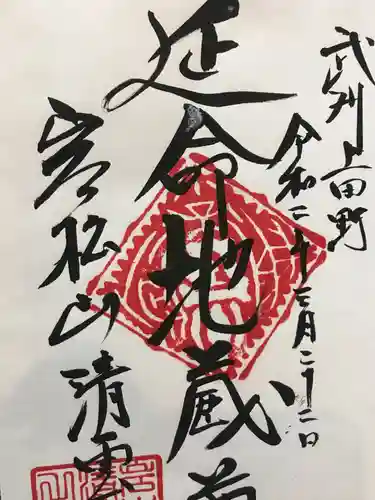 武州上田野
令和二年三月二十二日
延命地蔵尊
岩松山清雲